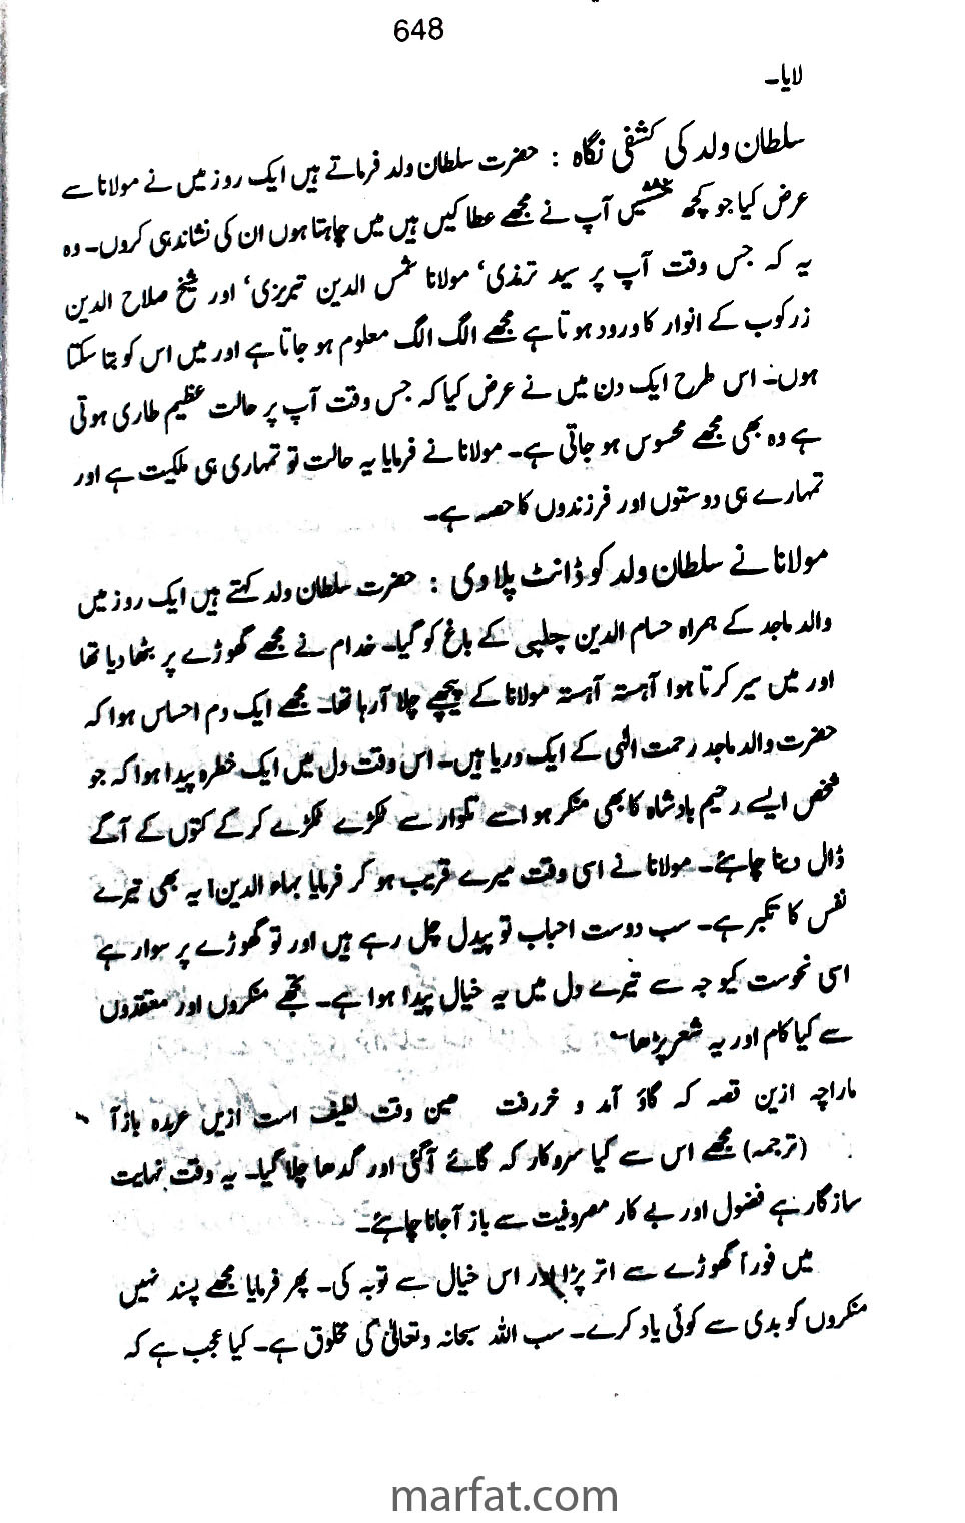 648
لایا۔
سلطان ولد کی کشفی نگاہ : حضرت سلطان ولد فرماتے ہیں ایک روز میں نے مولانا سے
عرض کیا جو کچھ بخششیں آپ نے مجھے عطا کیں ہیں میں چاہتا ہوں ان کی نشاندہی کروں۔ وہ
یہ کہ جس وقت آپ پر سید ترمذی‘ مولانا شمس الدین تبریزی‘ اور شیخ صلاح الدین
زرکوب کے انوار کا ورود ہوتا ہے مجھے الگ الگ معلوم ہو جاتا ہے اور میں اس کو بتا سکتا
ہوں۔ اس طرح ایک دن میں نے عرض کیا کہ جس وقت آپ پر حالت عظیم طاری ہوتی
ہے وہ بھی مجھے محسوس ہو جاتی ہے۔ مولانا نے فرمایا یہ حالت تو تمہاری ہی ملکیت ہے اور
تمہارے ہی دوستوں اور فرزندوں کا حصہ ہے۔
مولانا نے سلطان ولد کو ڈانٹ پلا دی : حضرت سلطان ولد کہتے ہیں ایک روز میں
والد ماجد کے ہمراہ حسام الدین چلپی کے باغ کو گیا۔ خدام نے مجھے گھوڑے پر بٹھا دیا تھا
اور میں سیر کرتا ہوا آہستہ آہستہ مولانا کے پیچھے چلا آرہا تھا۔ مجھے ایک دم احساس ہوا کہ
حضرت والد ماجد رحمت الٰہی کے ایک دریا ہیں۔ اس وقت دل میں ایک خطرہ پیدا ہوا کہ جو
شخص ایسے رحیم بادشاہ کا بھی منکر ہو اسے تلوار سے ٹکڑے ٹکڑے کر کے کتوں کے آگے
ڈال دینا چاہئے۔ مولانا نے اسی وقت میرے قریب ہو کر فرمایا بہاء الدین! یہ بھی تیرے
نفس کا تکبر ہے۔ سب دوست احباب تو پیدل چل رہے ہیں اور تو گھوڑے پر سوار ہے
اسی نحوست کیوجہ سے تیرے دل میں یہ خیال پیدا ہوا ہے۔ تجھے منکروں اور معتقدوں
سے کیا کام اور یہ شعر پڑھا؎
ماراچہ ازین قصہ کہ گاؤ آمد و خررفت ھمین وقت لطیف است ازیں عربدہ بازآ
(ترجمہ) مجھے اس سے کیا سروکار کہ گائے آگئی اور گدھا چلا گیا۔ یہ وقت نہایت
سازگار ہے فضول اور بے کار مصروفیت سے باز آجانا چاہئے۔
میں فوراً گھوڑے سے اتر پڑا اور اس خیال سے توبہ کی۔ پھر فرمایا مجھے پسند نہیں
منکروں کو بدی سے کوئی یاد کرے۔ سب اللہ سبحانہ وتعالیٰ کی مخلوق ہے۔ کیا عجب ہے کہ
marfat.com